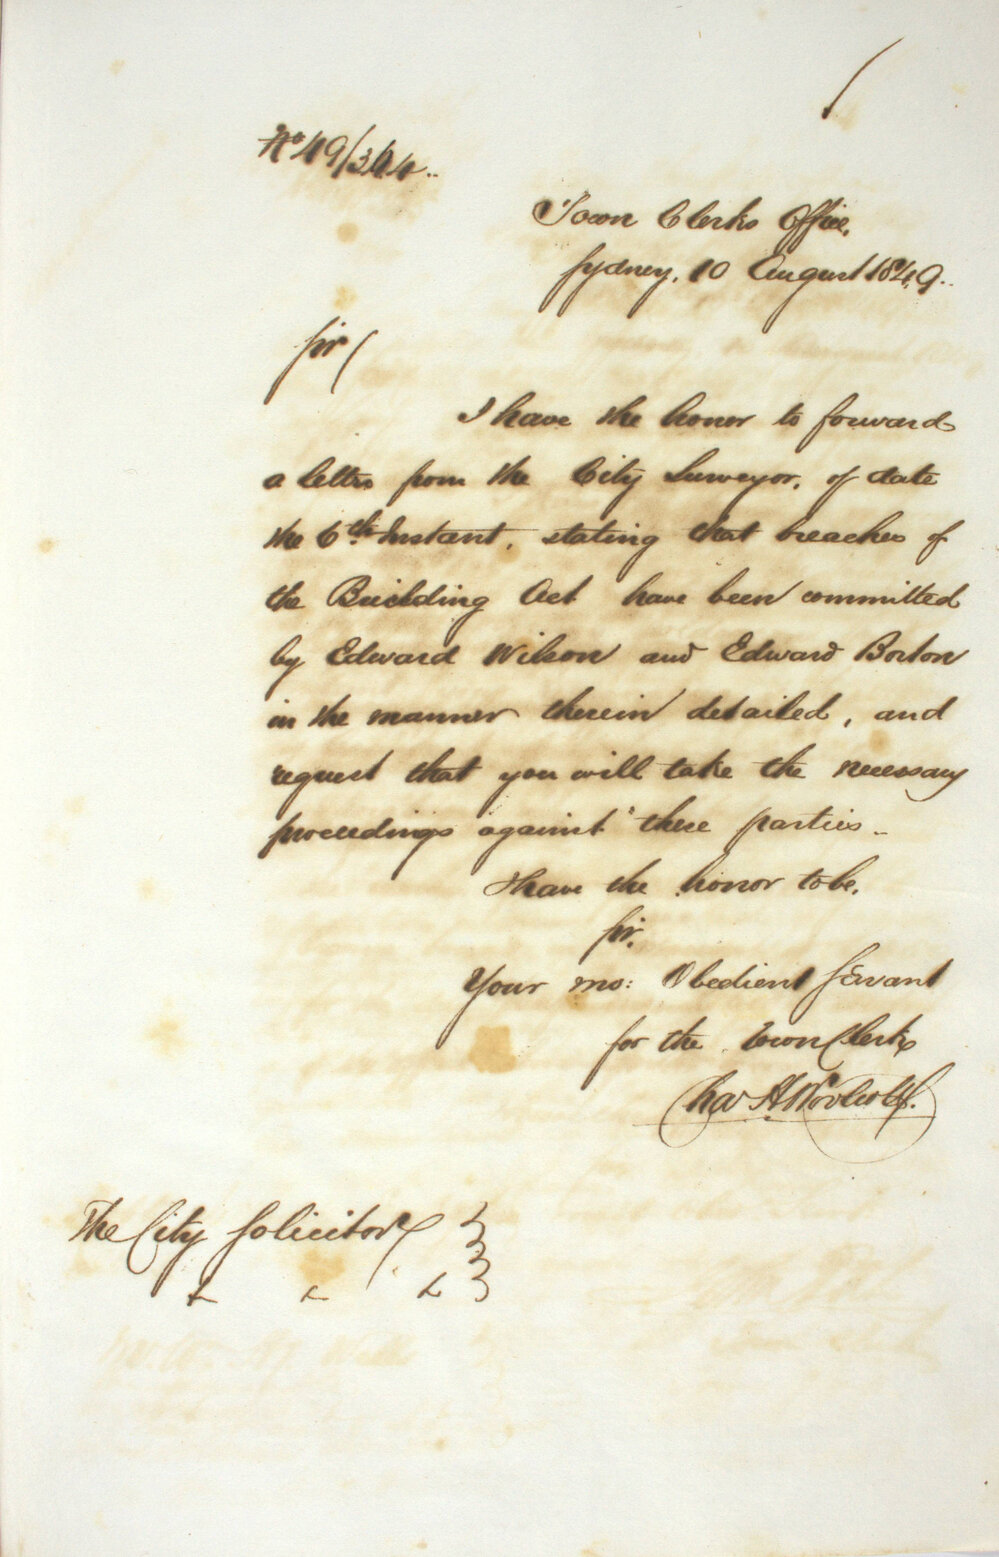 No 49/344..
Town Clerks Office,
Sydney, 10 August 1849..
Sir
I have the honor to forward
a letter from the City Surveyor, of date
the 6th Instant, stating that breaches of
the Building Act have been committed
by Edward Wilson and Edward Borton
in the manner therein detailed, and
request that you will take the necessary
proceedings against these parties..
I have the honor to be,
Sir,
Your mo: Obedient Servant
for the Town Clerk
Chas H Woolcott.
The City Solicitor